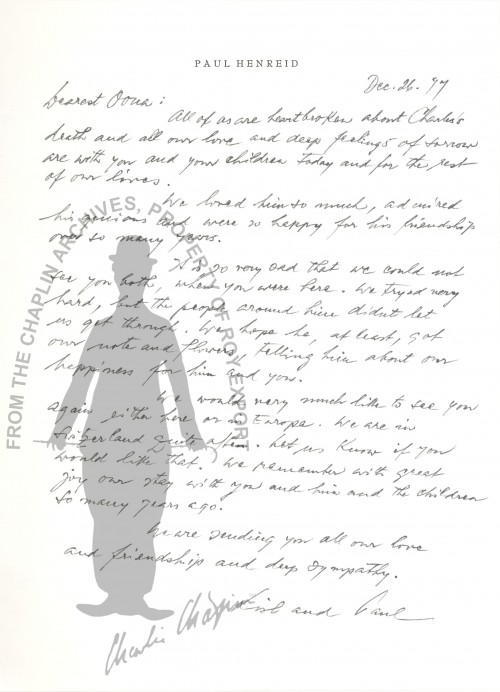 PAUL HENREID
Dec. 26. 77
Dearest Oona:
All of us are heartbroken about Charlie's
death and all our love and deep feelings of sorrow
are with you and your children today and for the rest
of our lives.
We loved him so much, admired
his genius and were so happy for his friendship
over so many years.
It is so very sad that we could not
see you both, when you were here. We tryed very
hard, but the people around him didnt let
us get through. We hope he, at least, got
our note and flowers, telling him about our
happiness for him and you.
We would very much like to see you
again either here or in Europe. We are in
quite often. Let us know if you
would like that. We remember with great
joy our stay with you and him and the children
so many years ago.
We are sending you all our love
and friendship and deep sympathy.
Lisl and Paul
FROM THE CHAPLIN ARCHIVES, PROPERTY OF ROY EXPORT
Charlie Chaplin